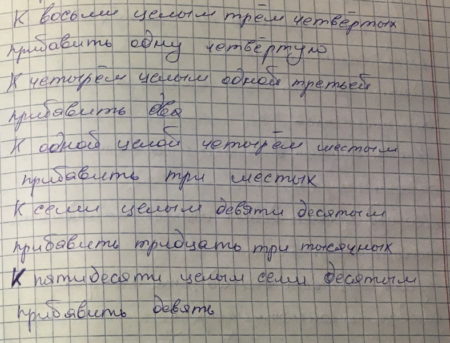 К восьми целым трём четвёртых
прибавить одну четвёртую
К четырём целым одной третьей
прибавить два
К одной целой четырём шестым
прибавить три шестых
К семи целым девяти десятым
прибавить тридцать три тысячных
К пятидесяти целым семи десятым
прибавить девять